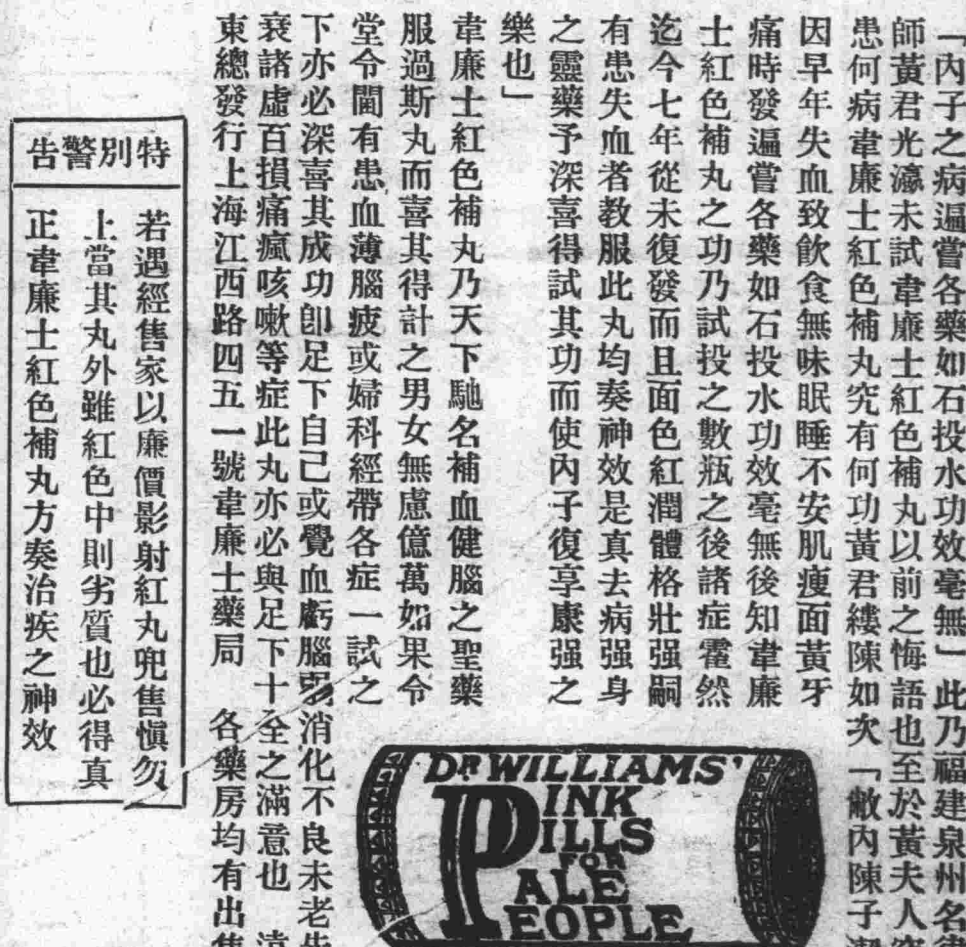 「內子之病遍嘗各藥如石投水功效毫無」此乃福建泉州名律
師黃君光瀛未試韋廉士紅色補丸以前之悔語也至於黃夫人
患何病韋廉士紅色補丸究有何功黃君縷陳如次「敝內陳子
因早年失血致飲食無味眠睡不安肌瘦面黃牙
痛時發遍嘗各藥如石投水功效毫無後知韋廉
士紅色補丸之功乃試投之數瓶之後諸症霍然
迄今七年從未復發而且面色紅潤體格壯强嗣
有患失血者教服此丸均奏神效是真去病强身
之靈藥予深喜得試其功而使內子復享康强之
樂也」
韋廉士紅色補丸乃天下馳名補血健腦之聖藥
服過斯丸而喜其得計之男女無慮億萬如果令
堂令閫有患血薄腦疲或婦科經帶各症一試之
下亦必深喜其成功卽足下自己或覺血虧腦弱消化不良未老先
衰諸虛百損痛瘋咳嗽等症此丸亦必與足下十全之滿意也 遠
東總發行上海江西路四五一號韋廉士藥局 各藥房均有出售
DR WILLIAMS'
PINK
PILLS
FOR
PALE
PEOPLE
特別警告
若遇經售家以廉價影射紅丸兜售愼勿
上當其丸外雖紅色中則劣質也必得真
正韋廉士紅色補丸方奏治疾之神效